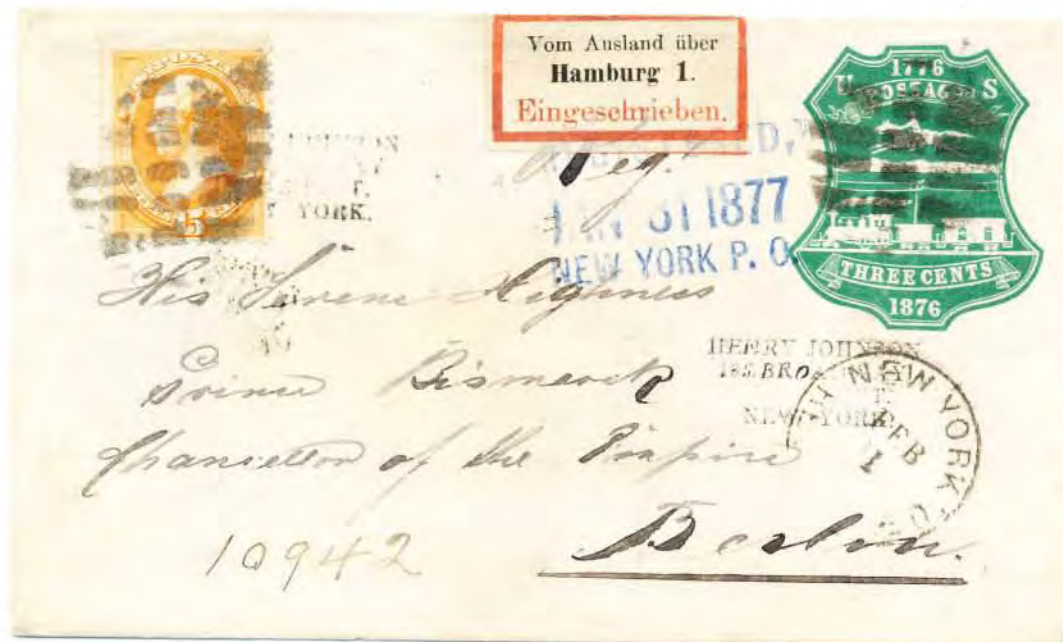 Vom Ausland über
Hamburg 1.
Eingeschrieben.
1776
U S
POSTAGE
THREE CENTS
1876
15
YORK.
Reg.
31 1877
NEW YORK P. O.
His Serene Highness
Prince Bismarck
Chancellor of the Empire
Berlin.
10942
HENRY JOHNSON
NEW-YORK.
NEW YORK
FEB
1